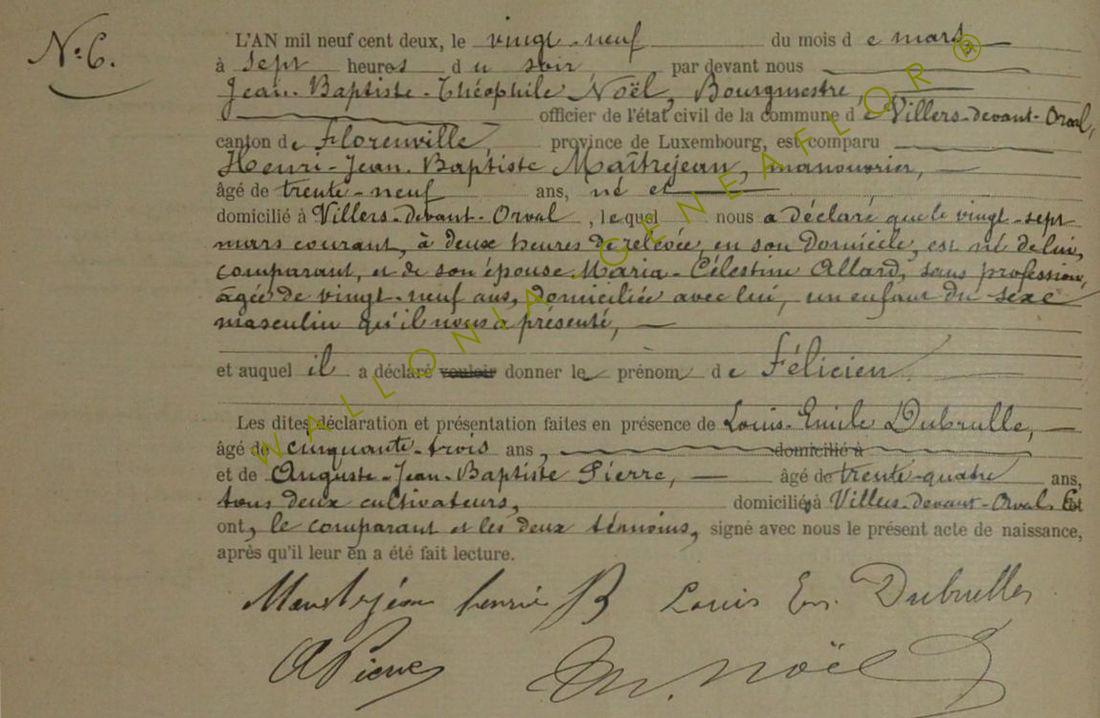 N° 6.
L'AN mil neuf cent deux, le vingt-neuf du mois de mars,
à sept heures du soir par devant nous
Jean-Baptiste-Théophile Noël, Bourgmestre,
officier de l'état civil de la commune de Villers-devant-Orval,
canton de Florenville, province de Luxembourg, est comparu
Henri-Jean-Baptiste Maîtrejean, manouvrier,
âgé de trente-neuf ans, né et
domicilié à Villers-devant-Orval, lequel nous a déclaré que le vingt-sept
mars courant, à deux heures de relevée, en son domicile, est né de lui,
comparant, et de son épouse Maria-Célestine Allard, sans profession,
âgée de vingt-neuf ans, domiciliée avec lui, un enfant du sexe
masculin qu'il nous a présenté,
et auquel il a déclaré vouloir donner le prénom de Félicien
Les dites déclaration et présentation faites en présence de Louis-Emile Dubrulle,
âgé de cinquante-trois ans, domicilié à
et de Auguste-Jean-Baptiste Pierre, âgé de trente-quatre ans,
tous deux cultivateurs, domiciliés à Villers-devant-Orval. Et
ont, le comparant et les deux témoins, signé avec nous le présent acte de naissance,
après qu'il leur en a été fait lecture.
henri B Louis Em. Dubrulle
A Pierre Noël
WALLONIA GENEAFLOR ®